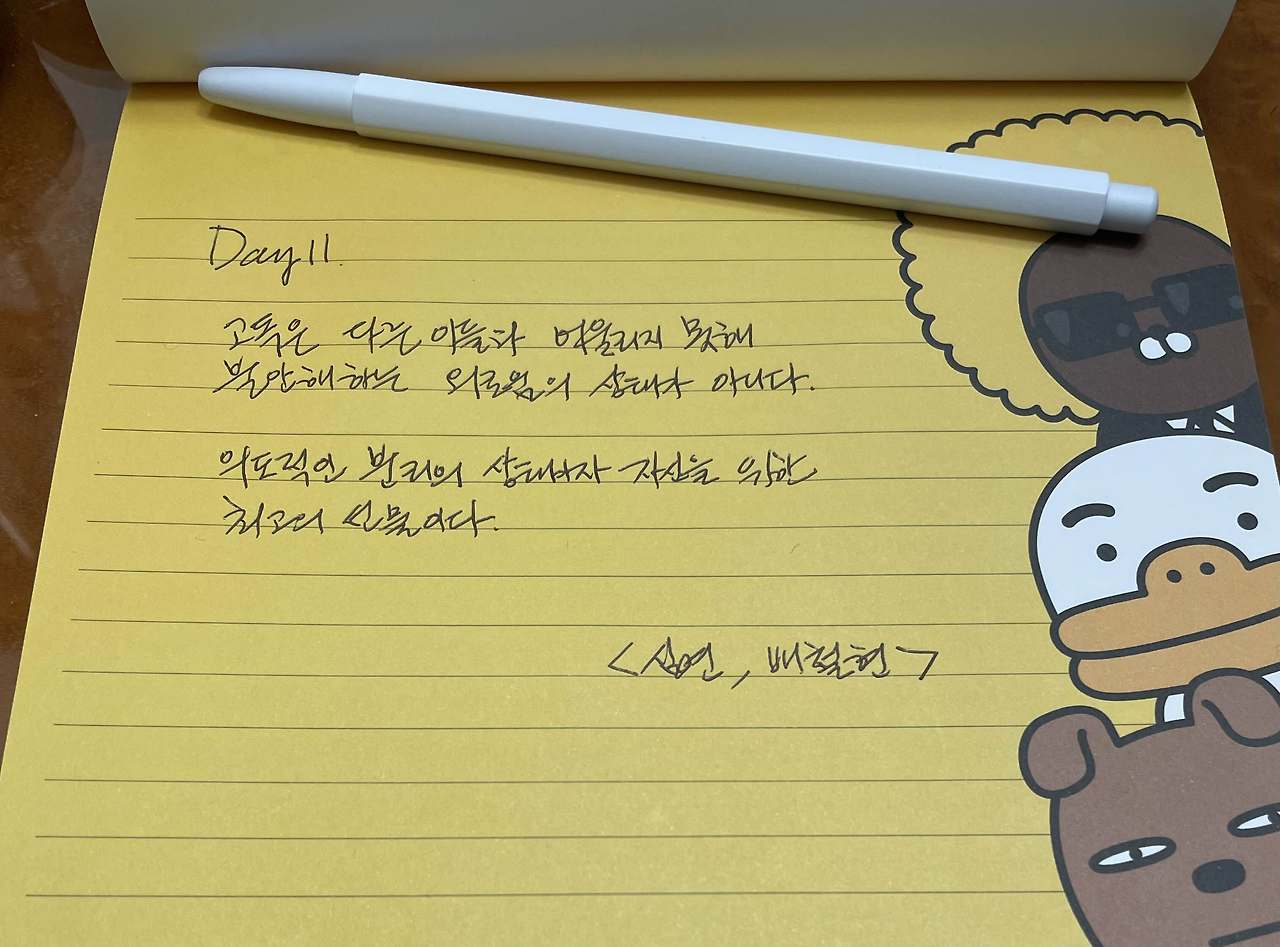 Day 11.
고독은 다른 이들과 어울리지 못해
불안해하는 외로움의 상태가 아니다.
의도적인 분리의 상태이자 자신을 위한
최고의 선물이다.
<심연, 배철현>